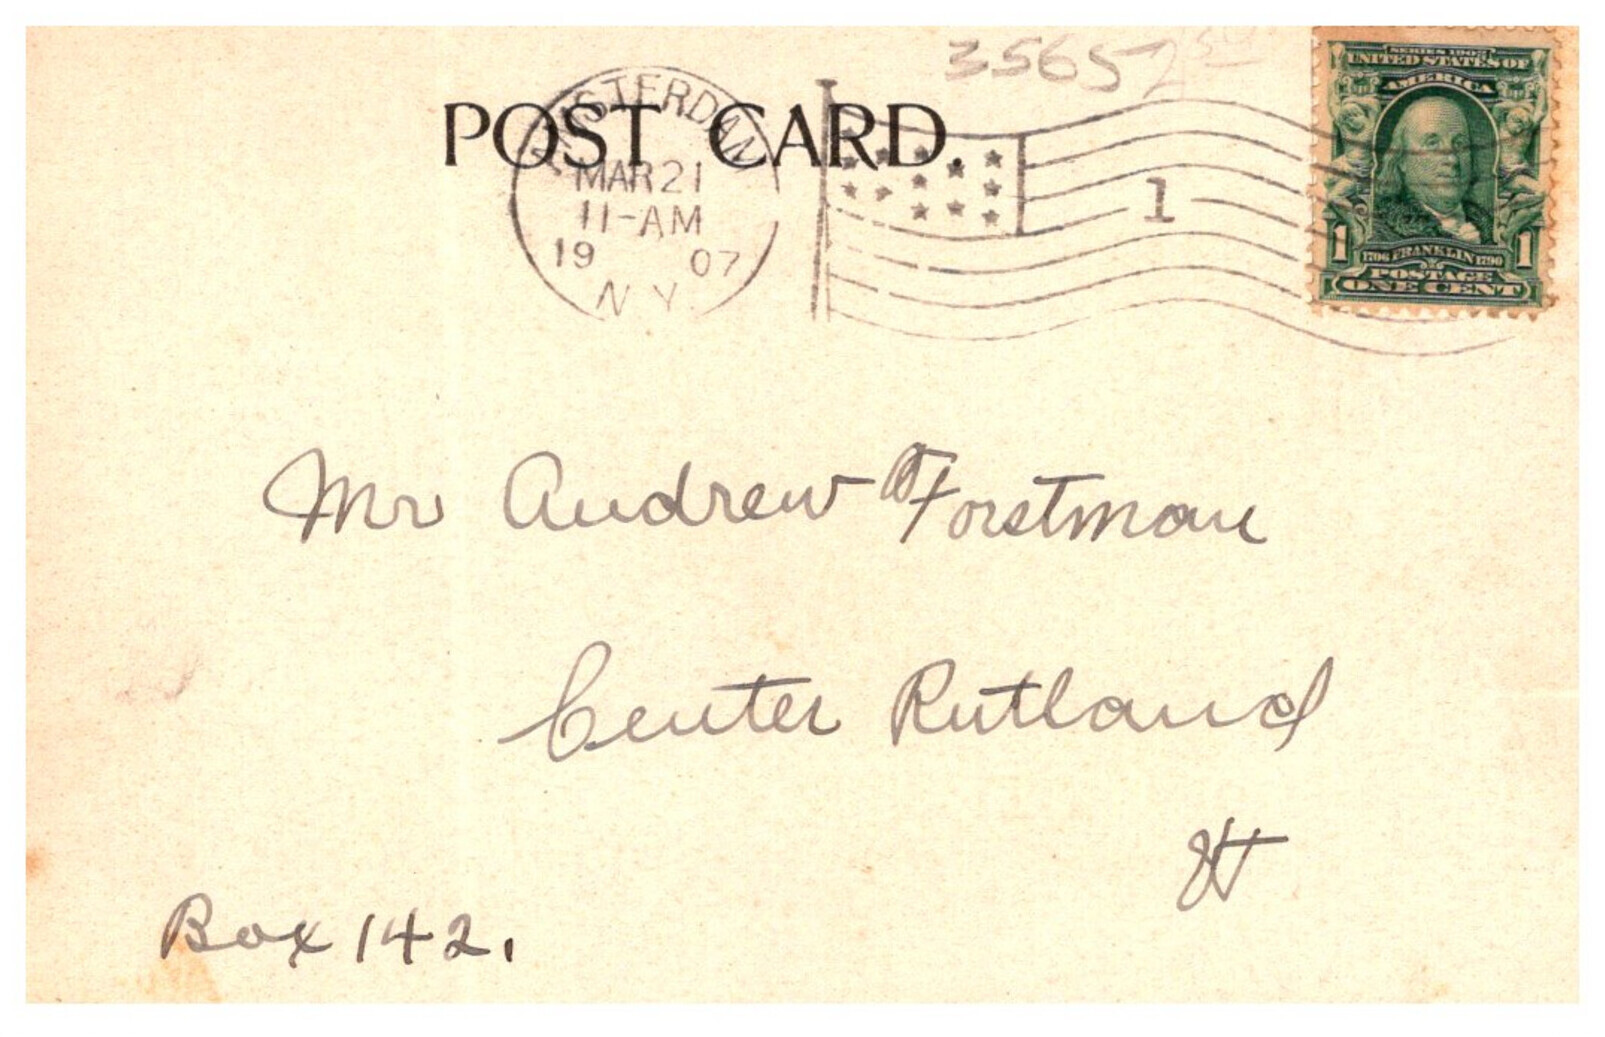 35657
SERIES 1902
UNITED STATES OF
AMERICA
POST CARD.
AMSTERDAM
MAR 21
11-AM
19 07
N.Y.
1
1 1706 FRANKLIN 1790 1
POSTAGE
ONE CENT
Mr Andrew Forstman
Center Rutland
Vt
Box 142.